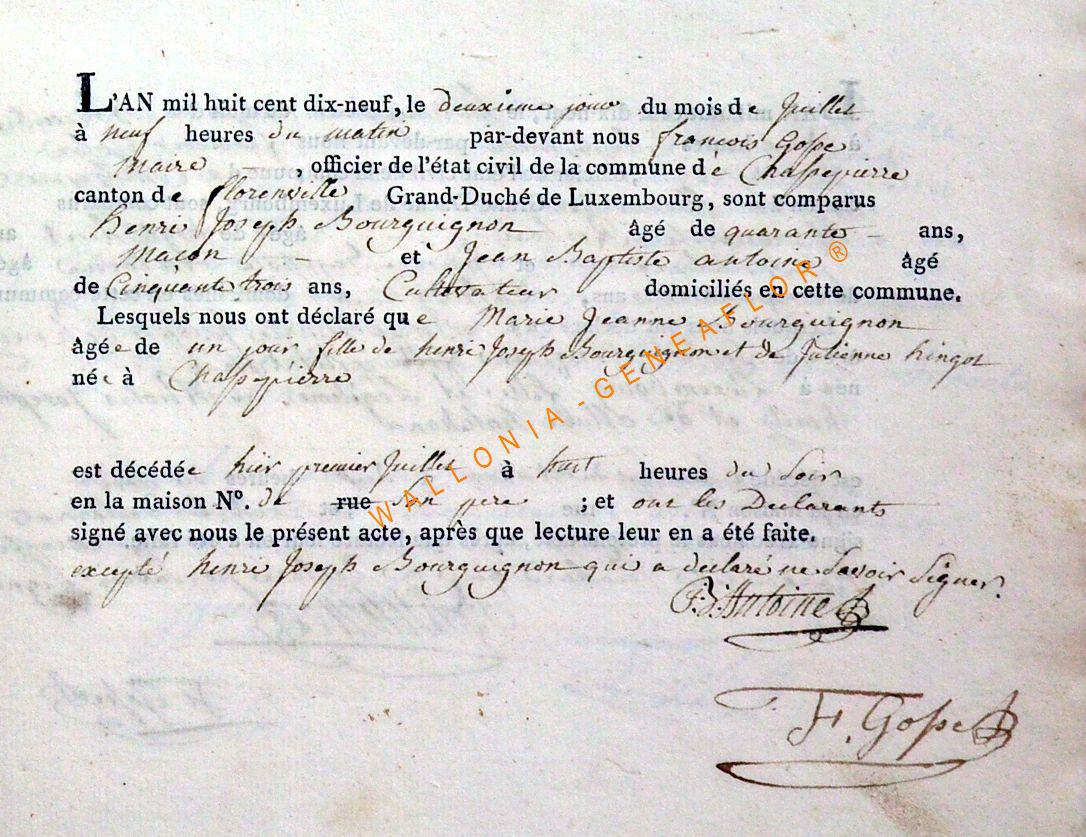 L'AN mil huit cent dix-neuf, le deuxième jour du mois de Juillet
à neuf heures du matin par-devant nous françois Gosse
Maire , officier de l'état civil de la commune de Chassepierre
canton de florenville Grand-Duché de Luxembourg, sont comparus
henri Joseph Bourguignon âgé de quarante ans,
Macon et Jean Baptiste antoine âgé
de Cinquante trois ans, Cultivateur domiciliés en cette commune.
Lesquels nous ont déclaré que Marie Jeanne Bourguignon
âgée de un jour fille de henri Joseph Bourguignon et de Julienne hingot
née à Chassepierre
est décédée hier premier Juillet à huit heures du Soir
en la maison N°. de rue Son pere ; et ont les Declarants
signé avec nous le présent acte, après que lecture leur en a été faite.
excepté henri Joseph Bourguignon qui a declare ne Savoir Signer.
J:B:Antoine
F. Gosse
WALLONIA - GENEAFLOR ®